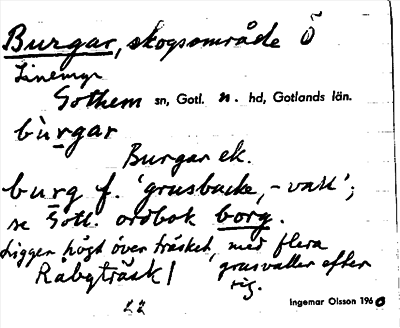 Burgar, skogsområde Ö
Linemyr
Gothem sn, Gotl. n. hd, Gotlands län.
bùrgar
Burgar ek.
burg f. 'grusbacke, -vall';
se Gotl. ordbok borg.
Ligger högt över träsket, med flera
Råbyträsk / grusvallar efter
sig.
22
Ingemar Olsson 1960